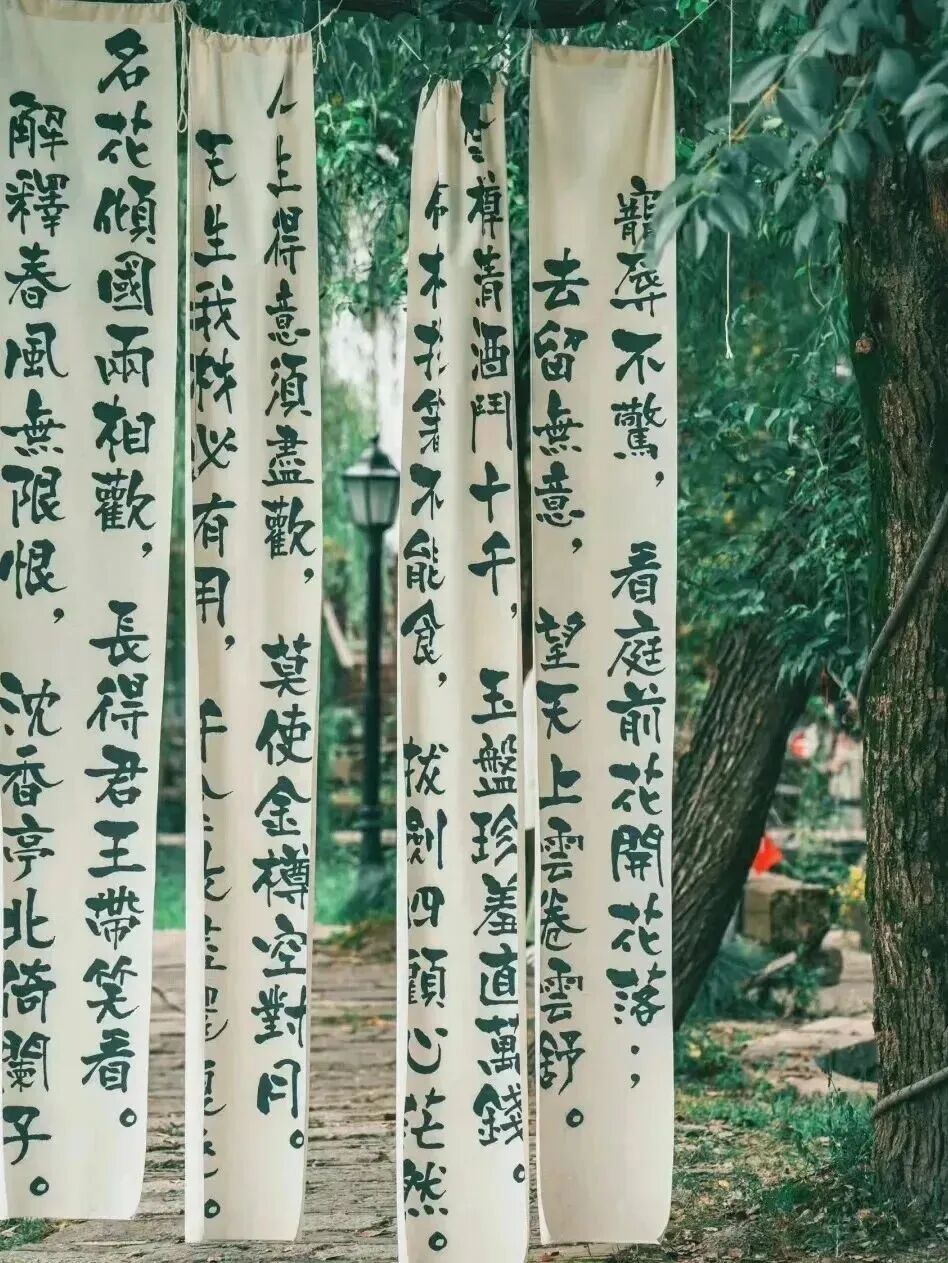 寵辱不驚,看庭前花開花落;
去留無意,望天上雲卷雲舒。
樽清酒鬥十千,玉盤珍羞直萬錢。
箸不能食,拔劍四顧心茫然。
生得意須盡歡,莫使金樽空對月。
天生我材必有用,千
名花傾國兩相歡,長得君王帶笑看。
解釋春風無限恨,沈香亭北倚闌干。